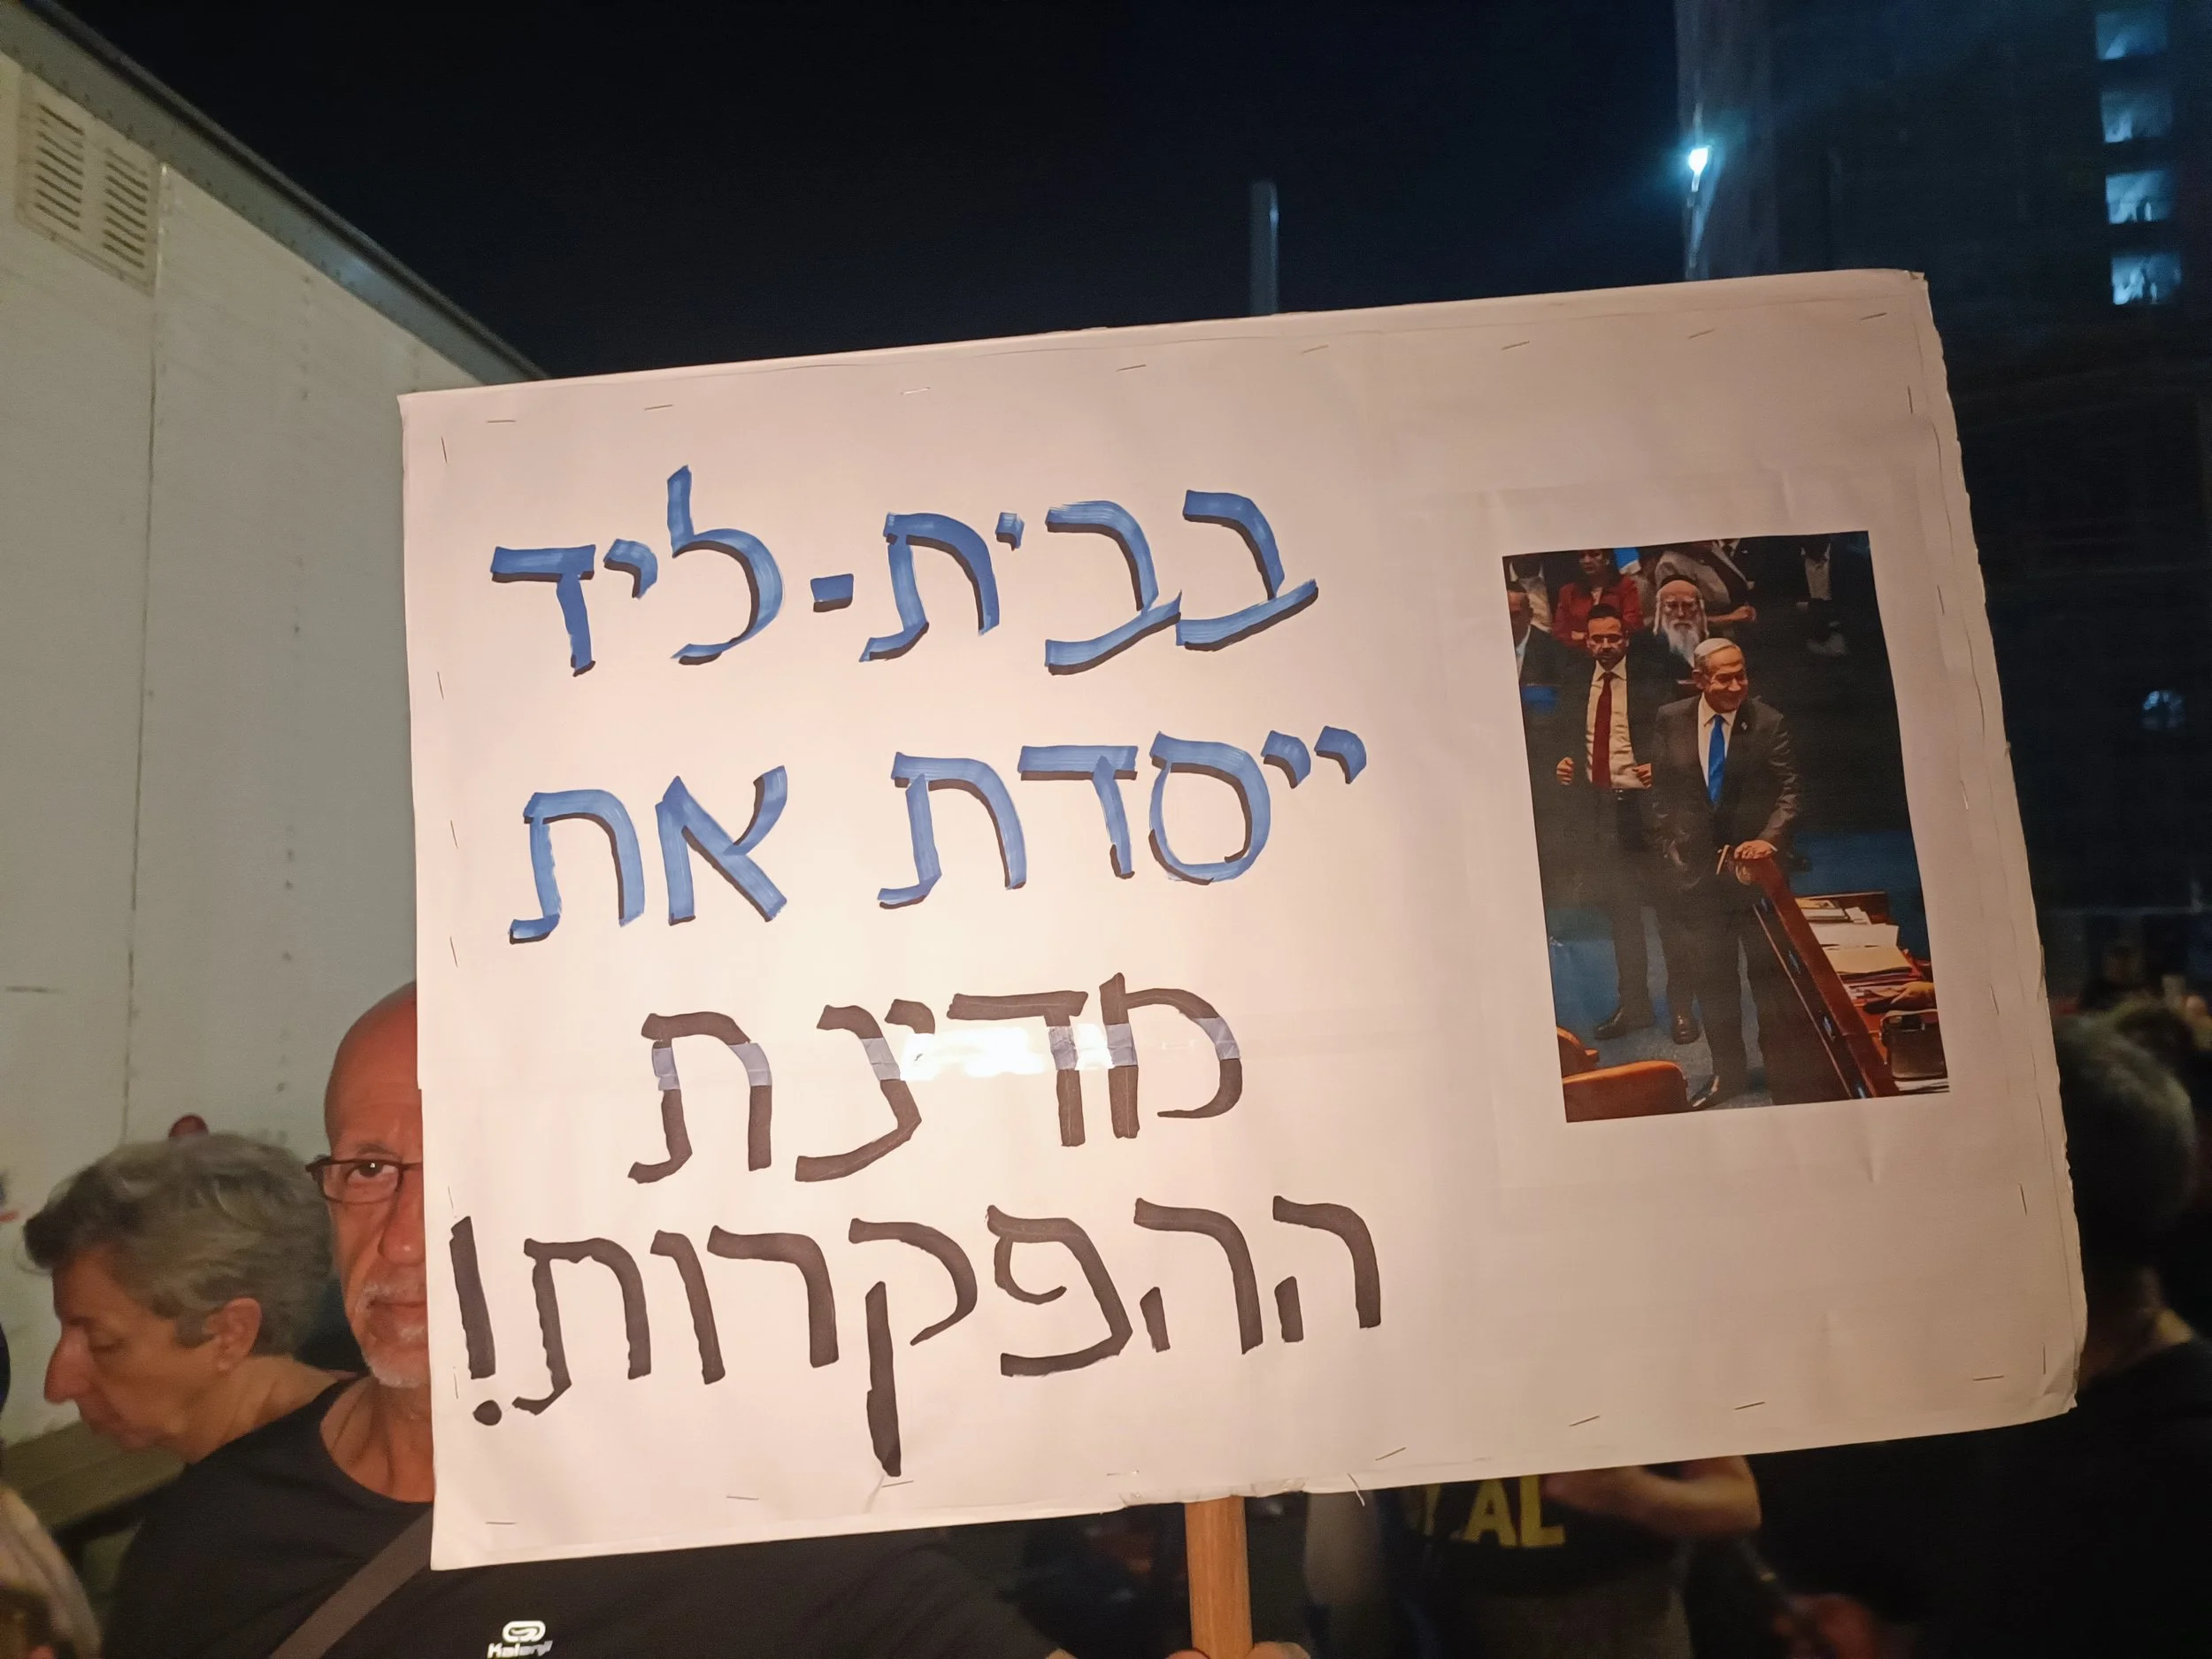 בבית-ליד
ייסדת את
מדינת
ההפקרות!
Kalenji